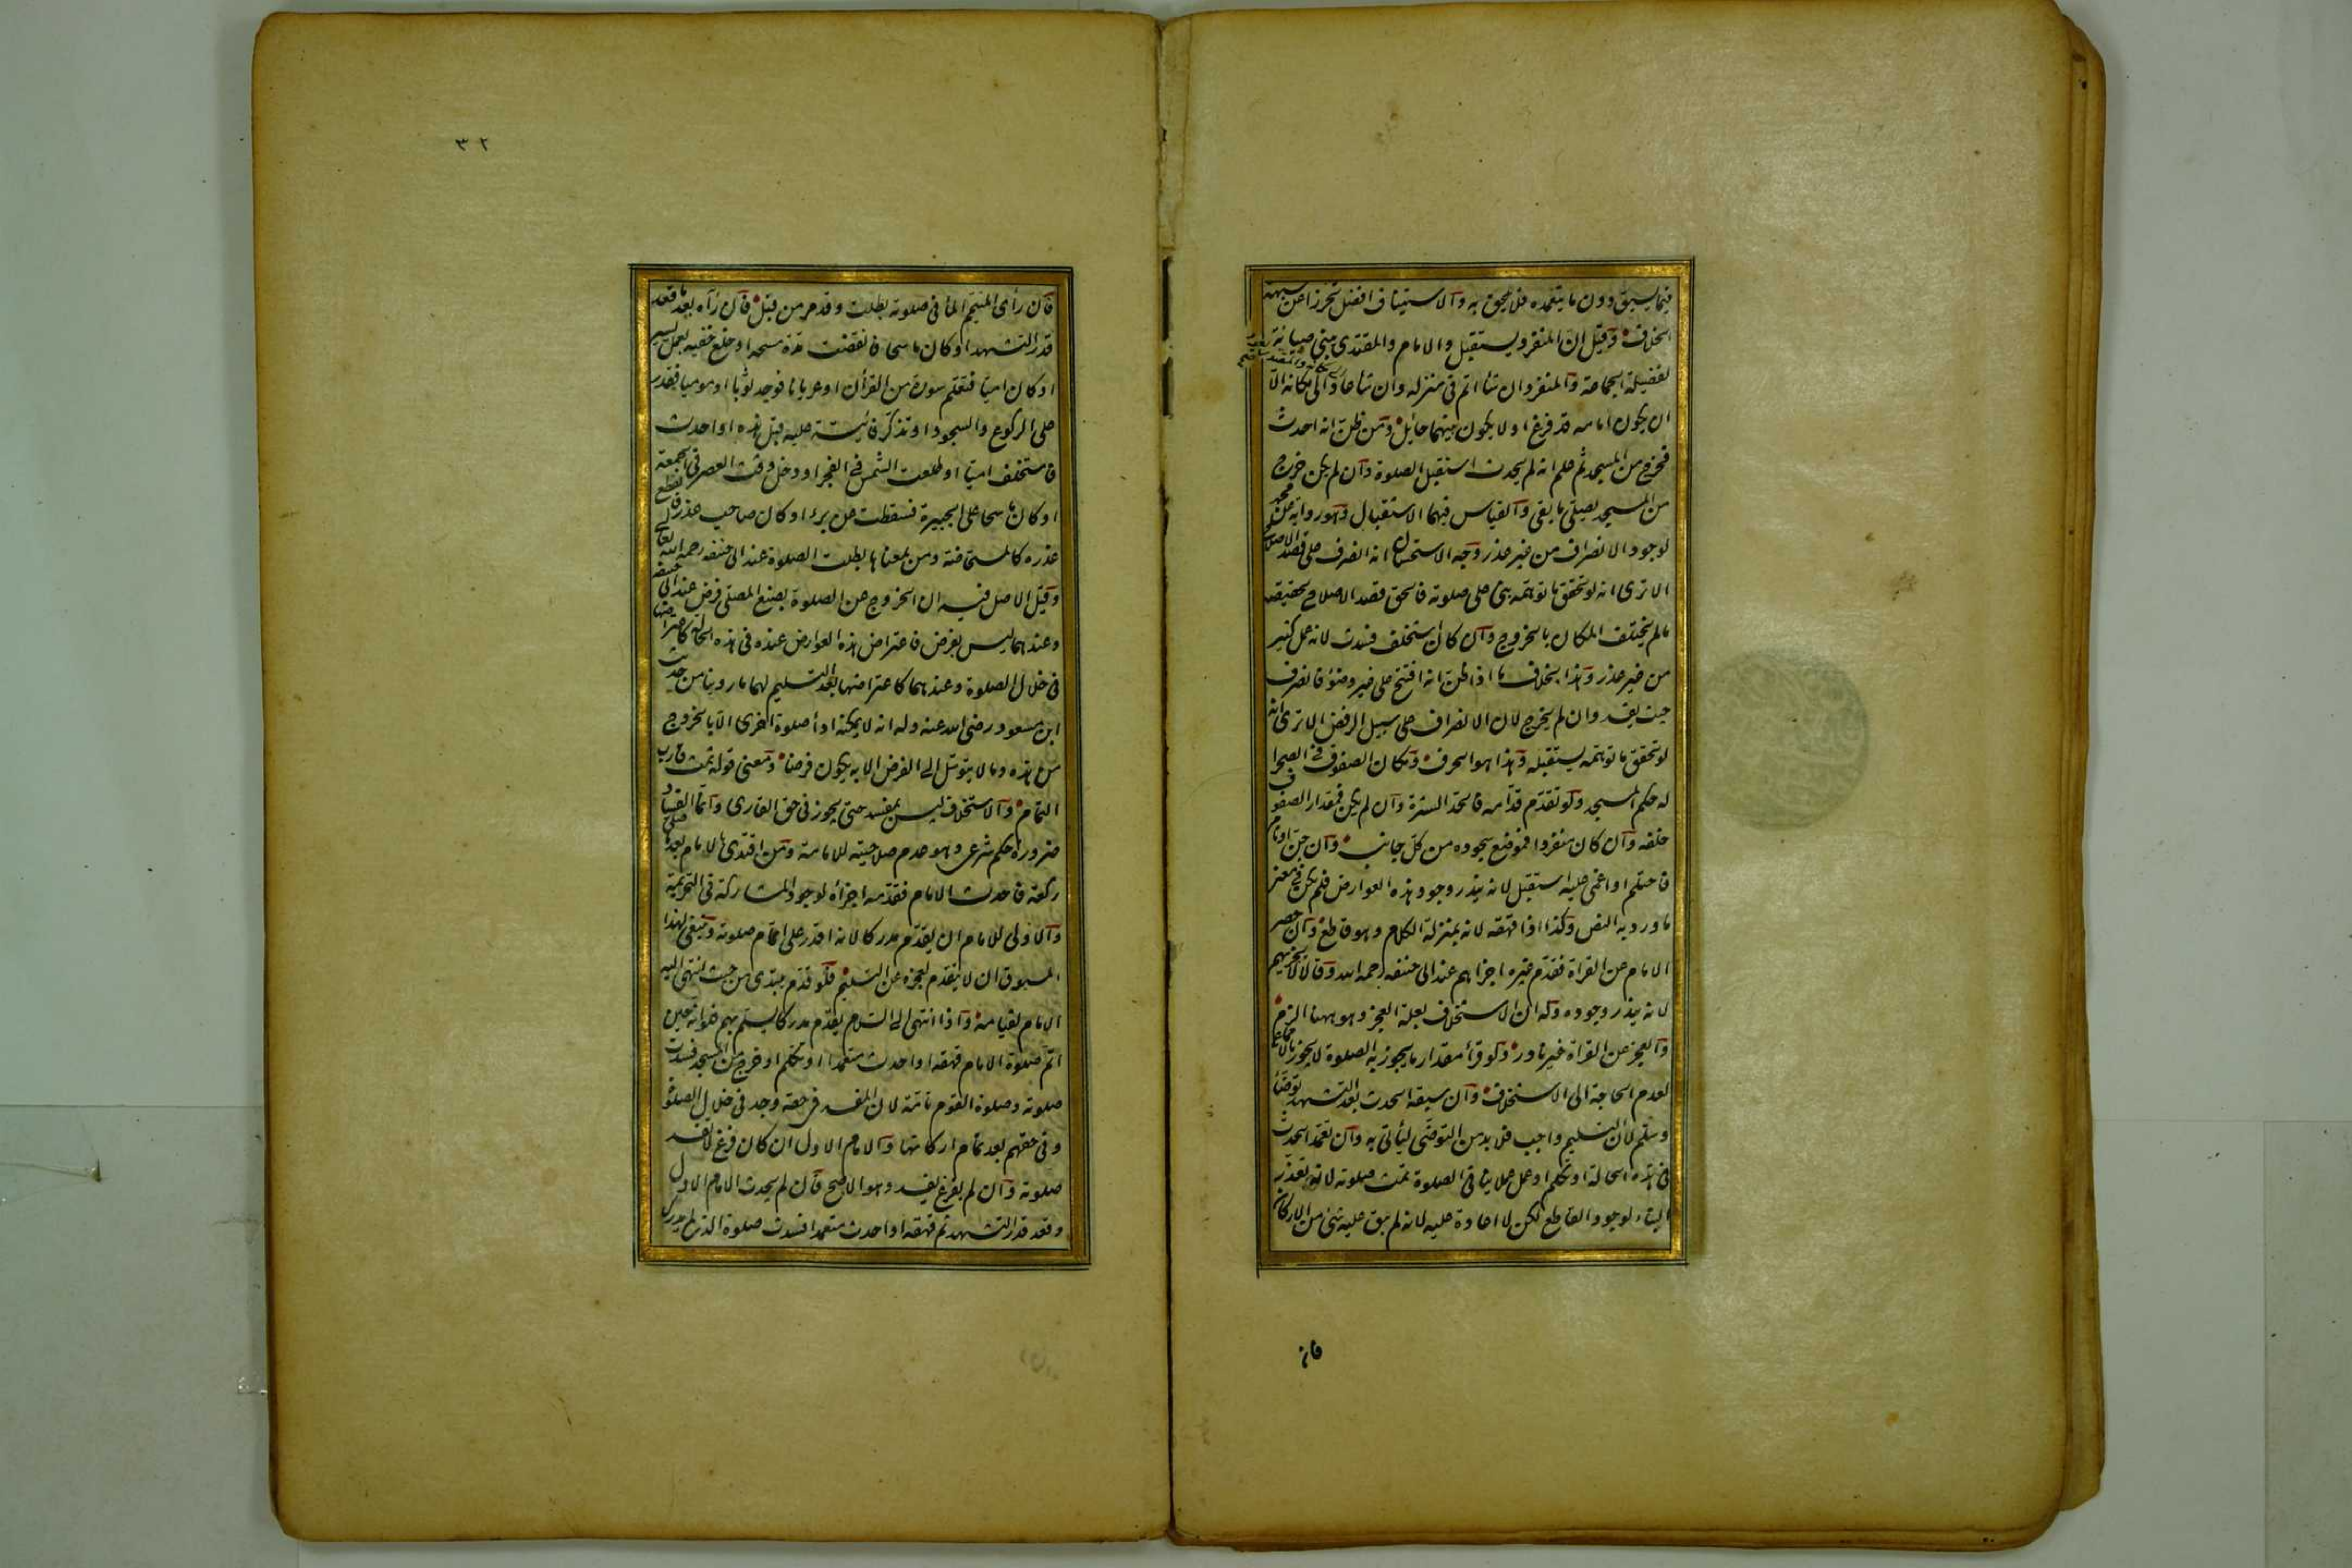 فيما يسبق دون ما يتعمده فلا يلحق به والاستيناف افضل تحرزا عن شبهة
الخلاف وقيل ان المنفرد يستقبل والامام والمقتدى يبنى صيانة
لفضيلة الجماعة والمنفرد ان شاء اتم فى منزله وان شاء عاد الى مكانه الا
ان يكون امامه قد فرغ اولا يكون بينهما حايل ومن ظن انه احدث
فخرج من المسجد ثم علم انه لم يحدث استقبل الصلوة وان لم يكن خرج
من المسجد يصلى ما بقى والقياس فيهما الاستقبال وهو رواية عن محمد
لوجود الانصراف من غير عذر وجه الاستحسان انه انصرف على قصد الاصلاح
الا ترى انه لو تحقق ما توهمه بنى على صلوته فالحق قصد الاصلاح بحقيقته
ما لم يختلف المكان بالخروج وان كان استخلف فسدت لانه عمل كثير
من غير عذر وهذا بخلاف ما اذا ظن انه افتتح على غير وضوء فانصرف
حيث يفسد وان لم يخرج لان الانصراف على سبيل الرفض الا ترى انه
لو تحقق ما توهمه يستقبله وهذا هو الحرف ومكان الصفوف فى الصحرا
له حكم المسجد ولو تقدم قدامه فالحد السترة وان لم يكن فمقدار الصفوف
خلفه وان كان منفردا فموضع سجوده من كل جانب وان جن او نام
فاحتلم او اغمى عليه استقبل لانه يندر وجود هذه العوارض فلم يكن فى معنى
ما ورد به النص وكذا اذا قهقه لانه بمنزلة الكلام وهو قاطع وان حصر
الامام عن القراة فقدم غيره اجزاهم عند ابى حنيفه رحمه الله وقالا لا يجزيهم
لانه يندر وجوده وله ان الاستخلاف بعلة العجز وهو ههنا الزم
والعجز عن القراة غير نادر ولو قرأ مقدار ما يجوز به الصلوة لا يجوز بالاجماع
لعدم الحاجة الى الاستخلاف وان سبقه الحدث بعد التشهد توضأ
وسلم لان التسليم واجب فلا بد من التوضى ليأتى به وان تعمد الحدث
فى هذه الحالة او تكلم او عمل عملا ينافى الصلوة تمت صلوته لانه تعذر
البناء لوجود القاطع لكن لا اعادة عليه لانه لم يبق عليه شئ من الاركان
فان
٣٢
فان رأى المتيمم الماء فى صلوته بطلت وقد مر من قبل فان رآه بعد ما قعد
قدر التشهد او كان ماسحا فانقضت مدة مسحه او خلع خفيه بعمل يسير
او كان اميا فتعلم سورة من القرآن او عريانا فوجد ثوبا او موميا فقدر
على الركوع والسجود او تذكر فائتة عليه قبل هذه او احدث
فاستخلف اميا او طلعت الشمس فى الفجر او دخل وقت العصر فى الجمعة
او كان ماسحا على الجبيرة فسقطت عن برء او كان صاحب عذر فانقطع
عذره كالمستحاضة ومن بمعناها بطلت الصلوة عند ابى حنيفه رحمه الله تعالى
وقيل الاصل فيه ان الخروج عن الصلوة بصنع المصلى فرض عند ابى حنيفه
وعندهما ليس بفرض فاعتراض هذه العوارض عنده فى هذه الحالة كاعتراضها
فى خلال الصلوة وعندهما كاعتراضها بعد التسليم لهما ما روينا من حديث
ابن مسعود رضى الله عنه وله انه لا يمكنه ادأ صلوة اخرى الا بالخروج
من هذه وما لا يتوسل الى الفرض الا به يكون فرضا ومعنى قوله تمت قاربت
التمام والاستخلاف ليس بمفسد حتى يجوز فى حق القارى وانما الفساد
ضرورة حكم شرعى وهو عدم صلاحيته للامامة ومن اقتدى بالامام بعد ما صلى
ركعة فاحدث الامام فقدمه اجزأه لوجود المشاركة فى التحريمة
والاولى للامام ان يقدم مدركا لانه اقدر على اتمام صلوته وينبغى لهذا
المسبوق ان لا يتقدم لعجزه عن التسليم فلو قدم يبتدى من حيث انتهى اليه
الامام لقيامه واذا انتهى الى السلام يقدم مدركا يسلم بهم فلو انه حين
اتم صلوة الامام قهقه او احدث متعمدا او تكلم او خرج من المسجد فسدت
صلوته وصلوة القوم تامة لان المفسد فى حقه وجد فى خلال الصلوة
وفى حقهم بعد تمام اركانها والامام الاول ان كان فرغ لا تفسد
صلوته وان لم يفرغ يفسد وهو الاصح فان لم يحدث الامام الاول
وقعد قدر التشهد ثم قهقه او احدث متعمدا فسدت صلوة الذى لم يدرك